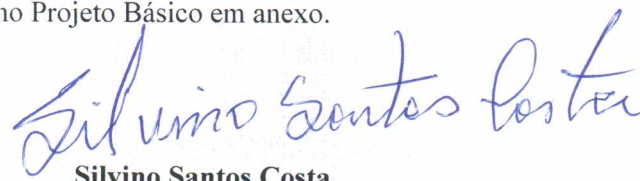 no Projeto Básico em anexo.
Silvino Santos Costa
Silvino Santos Costa